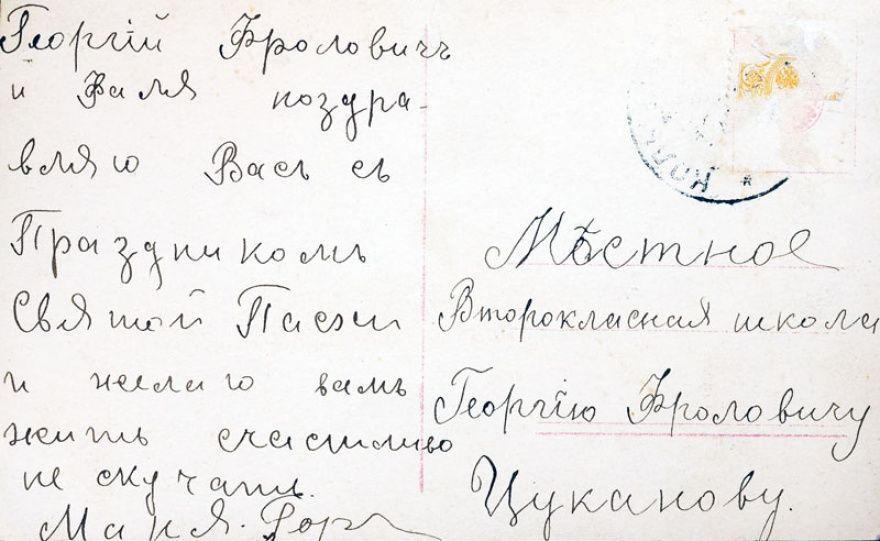 Георгій Фроловичъ
и Валя поздра-
вляю Васъ съ
Праздникомъ
Святой Пасхи
и желаю вамъ
жить счастливо
не скучать.
Маня.
Мѣстное
Второкласная школа
Георгію Фроловичу
Цуканову.